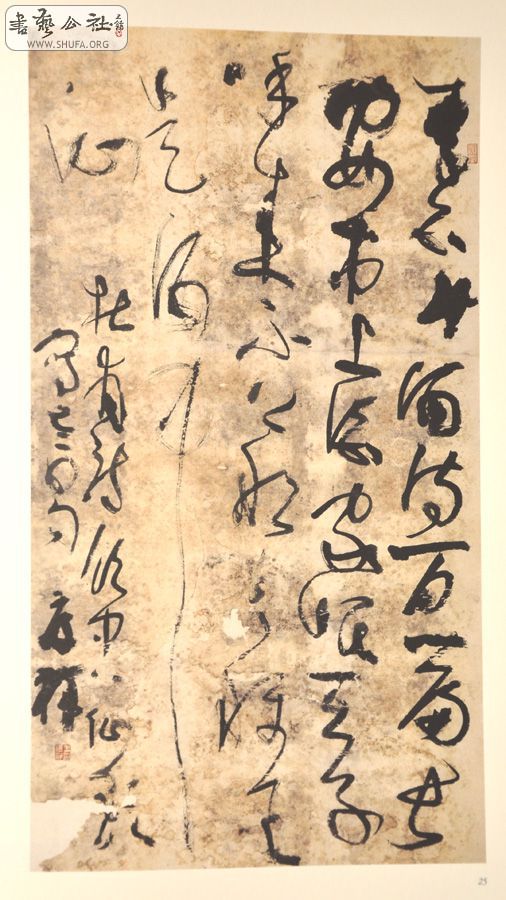 書藝公社
WWW.SHUFA.ORG
李白斗酒詩百篇長
安市上酒家眠天子
呼來不上船自稱臣
是酒中
仙
杜甫詩飲中八仙歌
25